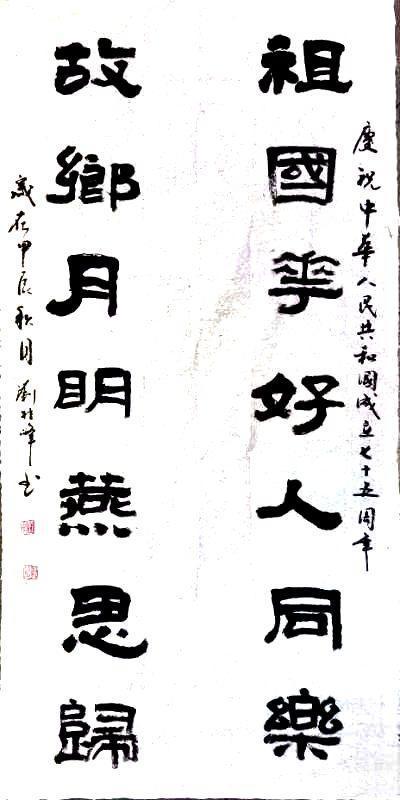 慶祝中華人民共和國成立七十五周年
祖國華好人同樂
故鄉月明燕思歸
歲在甲辰秋月劉
書